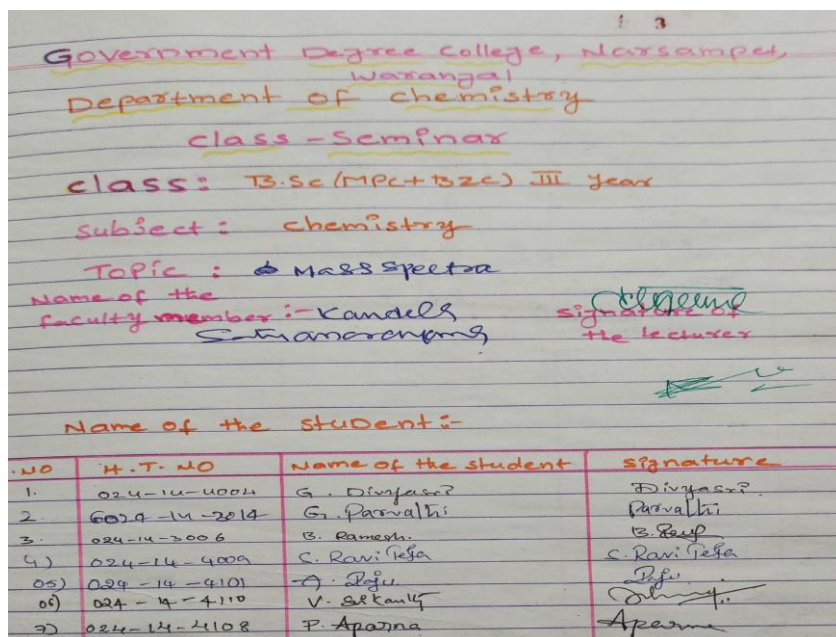 Government Degree College, Narsampet,
Warangal
Department of chemistry
class - Seminar
class: B.Sc (MPC + BZC) III year
subject: chemistry
Topic : Mass Spectra
Name of the
faculty member :- Kandela
signature of
the lecturer
Name of the student :-
.NO H.T. NO Name of the student signature
1. 024-14-4004 G. Divyasri Divyasri
2. 6024-14-2014 G. Parvathi Parvathi
3. 024-14-3006 B. Ramesh. B.
4) 024-14-4009 C. Ravi Teja C. Ravi Teja
05) 024-14-4101 A. Raju Raju
06) 024-14-4110 V.
7) 024-14-4108 P. Aparna Aparna